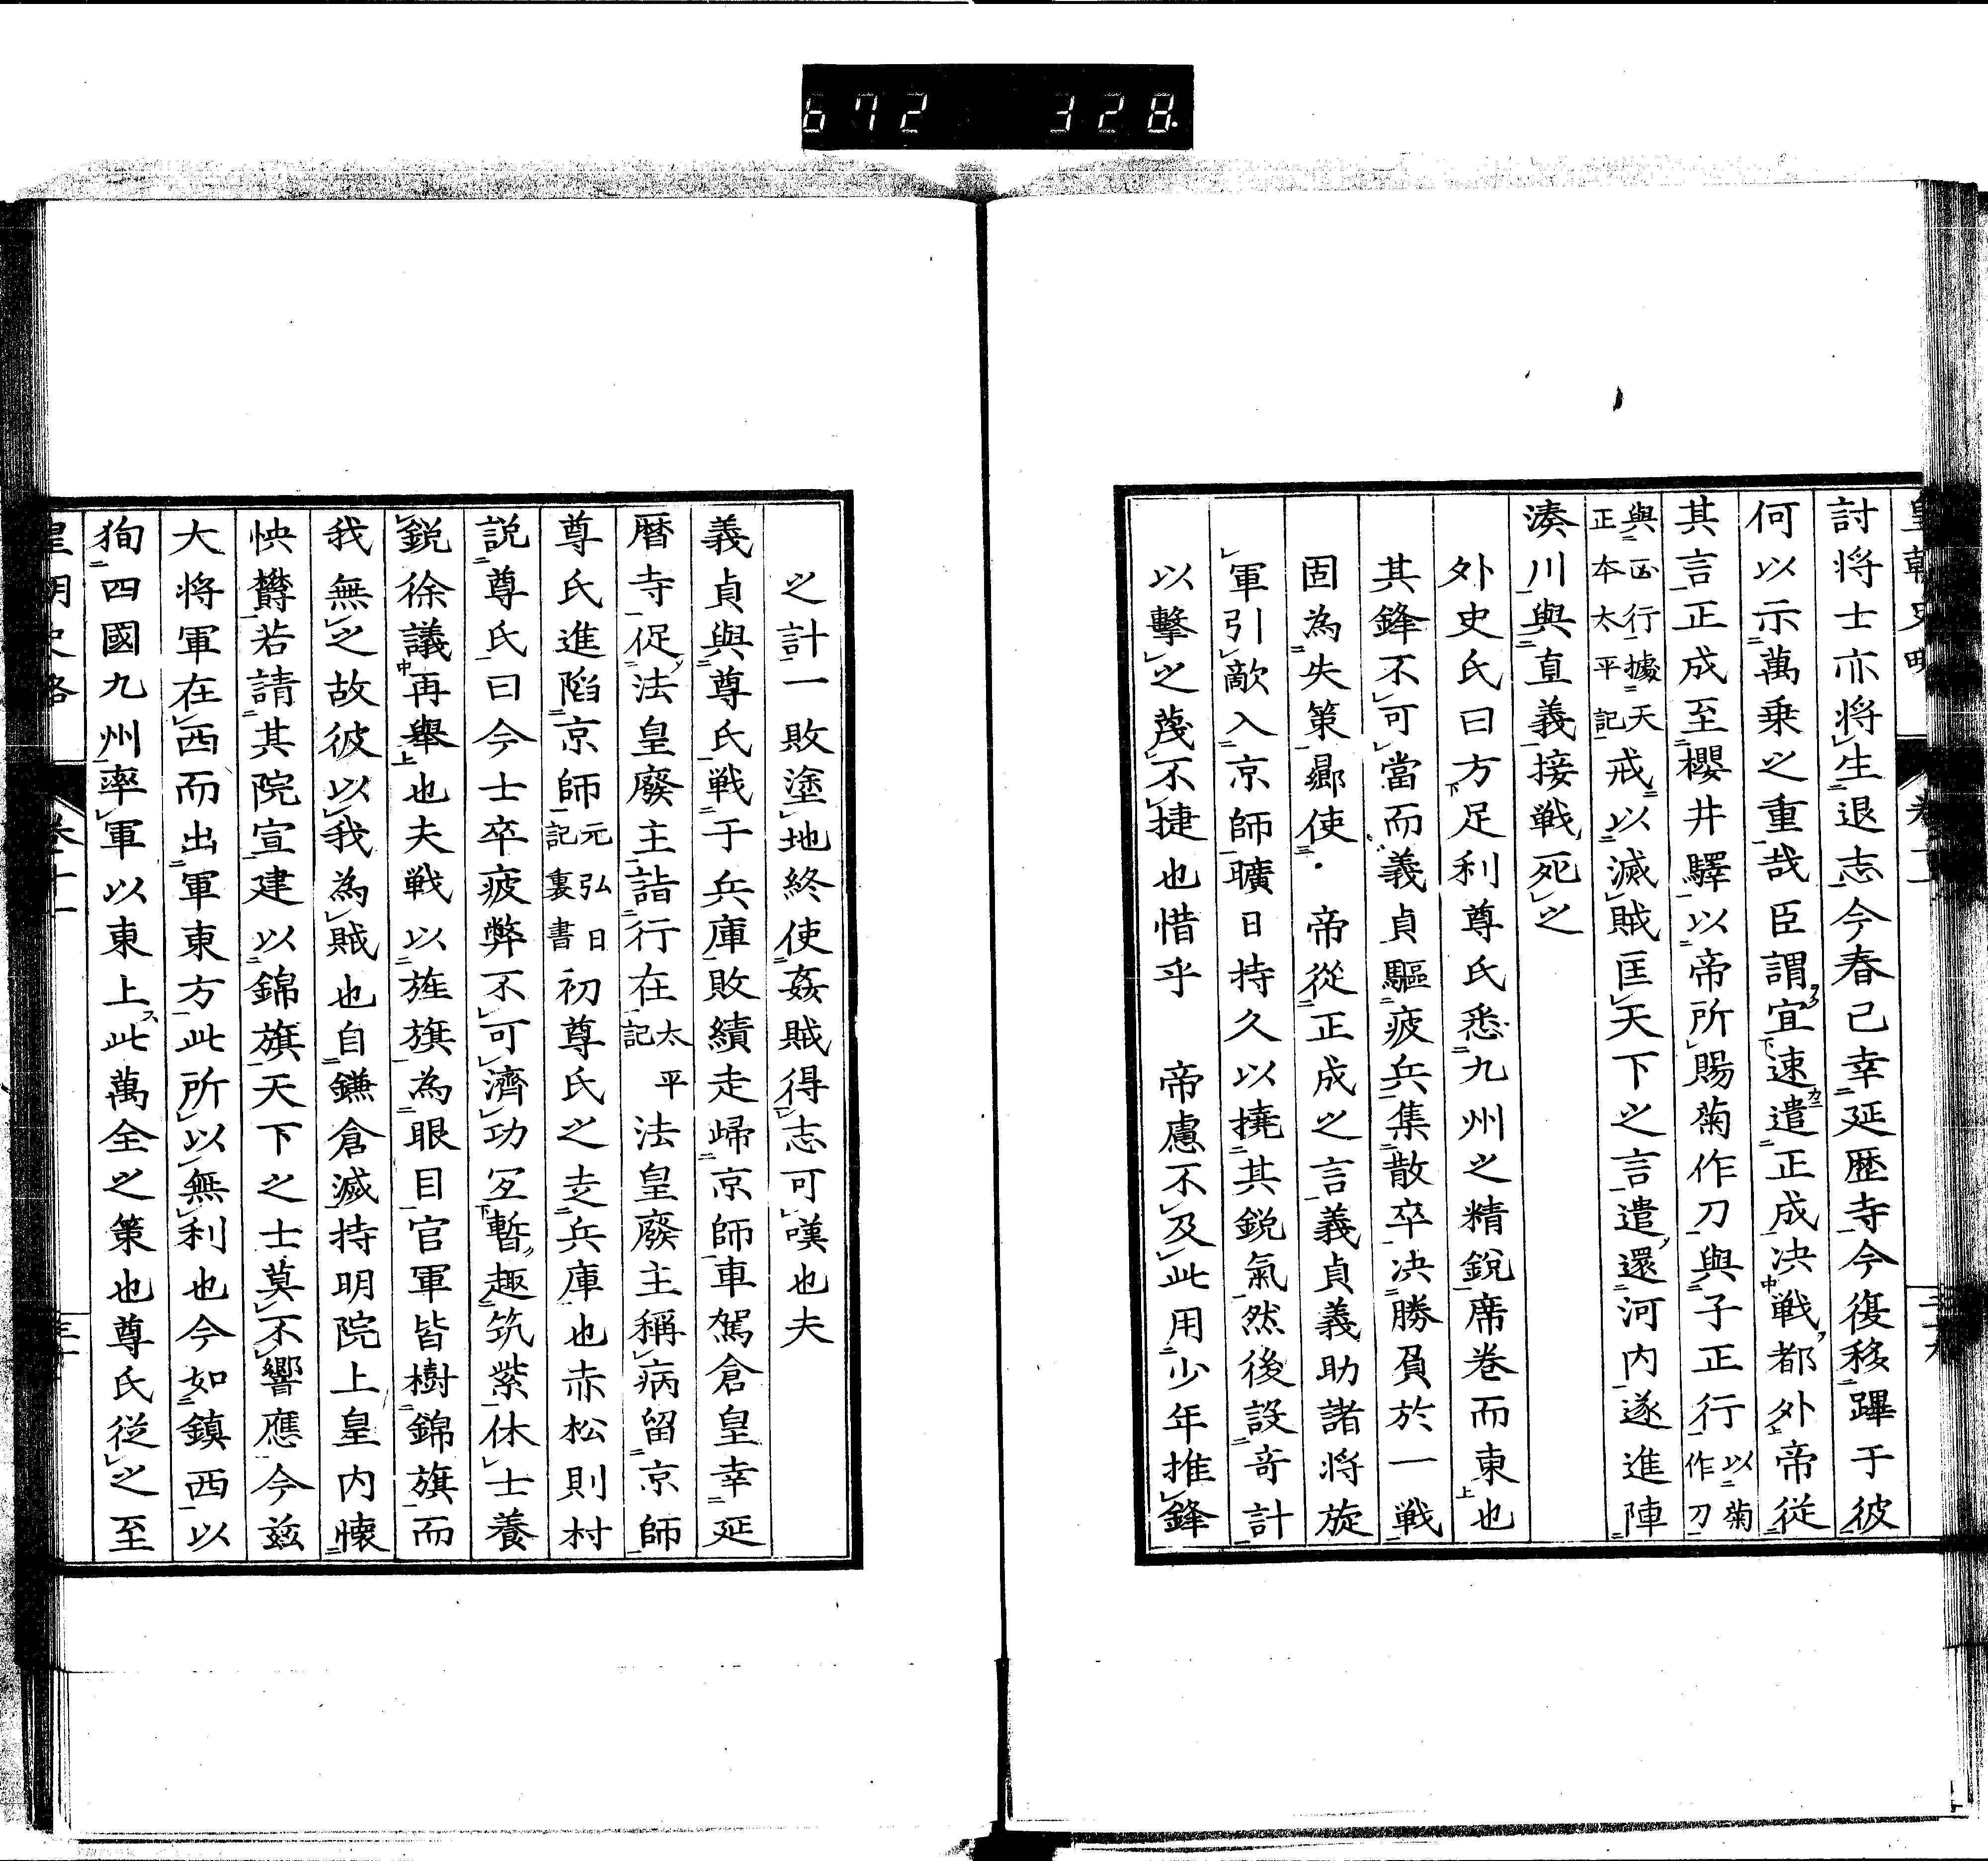 672 328
皇朝史略 卷十一
討将士亦将生退志今春已幸延歴寺今復移蹕于彼
何以示萬乗之重哉臣謂宜速遣正成决戦都外帝従
其言正成至櫻井驛以帝所賜菊作刀與子正行以菊作刀
與正行據天正本太平記戒以滅賊匡天下之言遣還河内遂進陣
湊川與直義接戦死之
外史氏曰方足利尊氏悉九州之精鋭席巻而東也
其鋒不可當而義貞驅疲兵集散卒决勝負於一戦
固為失策郷使帝從正成之言義貞義助諸将旋
軍引敵入京師曠日持久以撓其鋭氣然後設竒計
以擊之蔑不捷也惜乎 帝慮不及此用少年推鋒
之計一敗塗地終使姦賊得志可嘆也夫
義貞與尊氏戦于兵庫敗績走歸京師車駕倉皇幸延
暦寺促法皇廢主詣行在太平記法皇廢主稱病留京師
尊氏進陷京師元弘日記裏書初尊氏之走兵庫也赤松則村
説尊氏曰今士卒疲弊不可濟功宜暫趣筑紫休士養
鋭徐議再舉也夫戦以旌旗為眼目官軍皆樹錦旗而
我無之故彼以我為賊也自鎌倉滅持明院上皇内懐
怏欝若請其院宣建以錦旗天下之士莫不響應今茲
大将軍在西而出軍東方此所以無利也今如鎮西以
狥四國九州率軍以東上此萬全之策也尊氏從之至
皇朝史略 卷十一